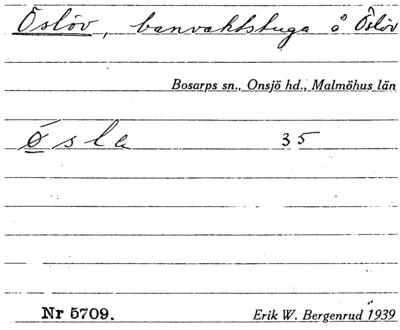 Öslöv, banvaktstuga å Öslöv
Bosarps sn., Onsjö hd., Malmöhus län
ö̀sla 35
Nr 5709. Erik W. Bergenrud 1939